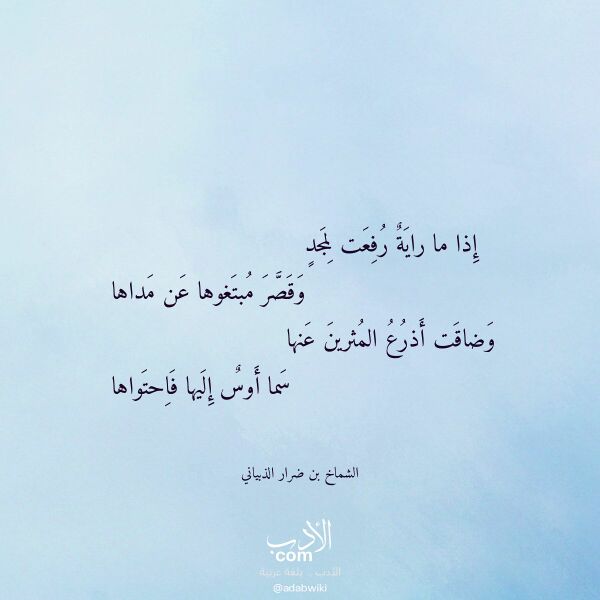 إِذا ما رايَةٌ رُفِعَت لِمَجدٍ
وَقَصَّرَ مُبتَغوها عَن مَداها
وَضاقَت أَذرُعُ المُثرينَ عَنها
سَما أَوسٌ إِلَيها فَاِحتَواها
الشماخ بن ضرار الذبياني
الأدب
com
الأدب .. بلغة عربية
@adabwiki